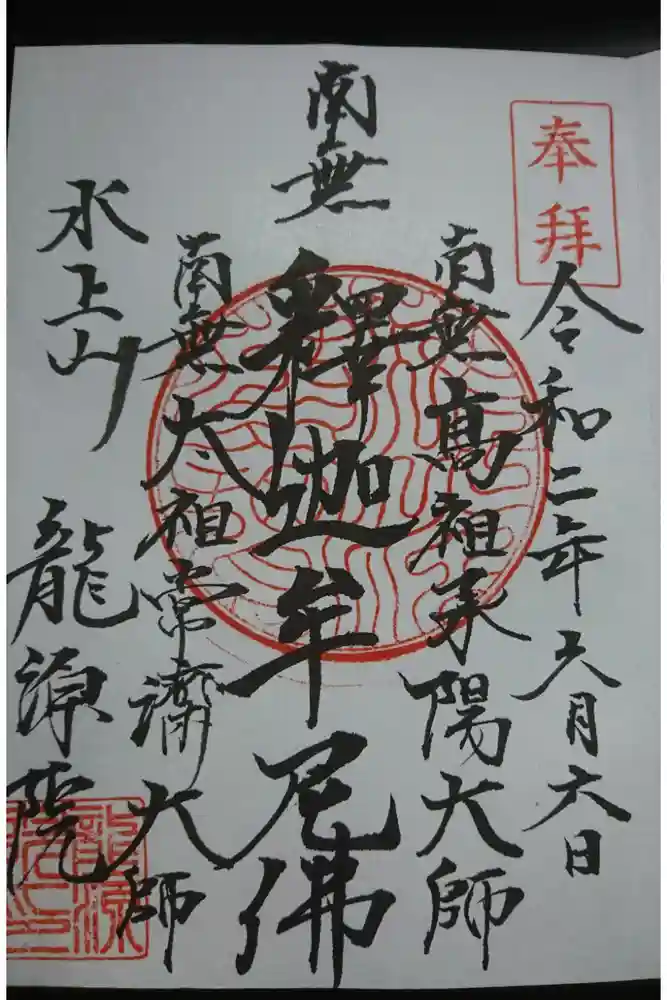 奉拝
令和二年六月六日
南無高祖承陽大師
南無釋迦牟尼佛
南無太祖常濟大師
水上山
龍源院